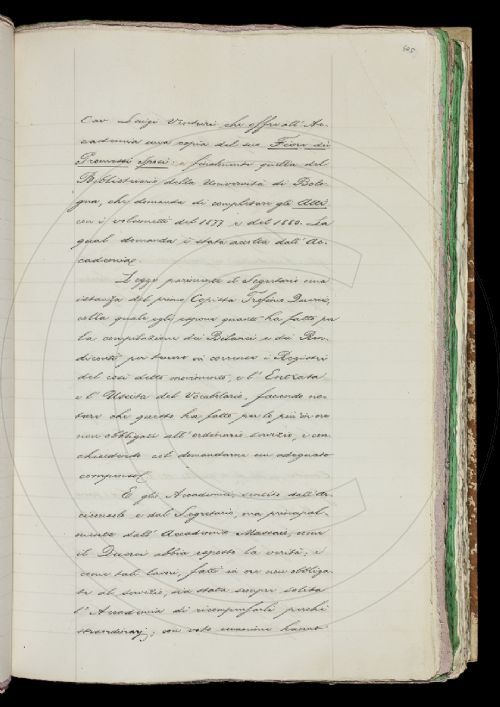 Cav Luigi Venturi che offre all'Ac-
cademia una copia del suo Fiore dei
Promessi Sposi: e finalmente quella del
Bibliotecario della Università di Bolo-
gna, che domanda di completare gli Atti
con i volumetti del 1877 e del 1880. La
qual domanda è stata accolta dall'Ac-
cademia.
Legge parimente il Segretario una
istanza del primo Copista
colla quale egli espone quanto ha fatto per
la compilazione dei Bilanci e dei Ren-
diconti per tenere in corrente i Registri
del così detto movimento, e l'Entrata
e l'Uscita del Vocabolario, facendo no-
tare che questo ha fatto per lo più in ore
non obbligate all'ordinario servizio, e con-
chiudendo col domandarne un adeguato
compenso.
E gli Accademici, uditi dall'Ar-
ciconsolo e dal Segretario, ma principal-
mente dall'Accademico, come
il abbia esposto la verità, e
come tali lavori, fatti in ore non obbliga-
te al servizio, sia stata sempre solita
l'Accademia di ricompensarli perché
straordinarj; con voto unanime hanno